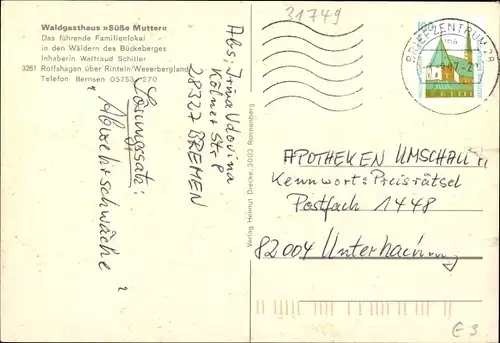 Waldgasthaus »Süße Mutter«
Das führende Familienlokal
in den Wäldern des Bückeberges
Inhaberin Waltraud Schiller
3261 Rolfshagen über Rinteln/Weserbergland
Telefon Bernsen 05753 / 270
Lösungssatz:
"Abwehrschwäche"
Abs: Irina Udovina
Kölner Str. 8
28327 BREMEN
Verlag Helmut Diecke, 3003 Ronnenberg
31749
100
BRIEFZENTRUM 28
APOTHEKEN UMSCHAU"
Kennwort: Preisrätsel
Postfach 1448
82004 Unterhaching
€ 3